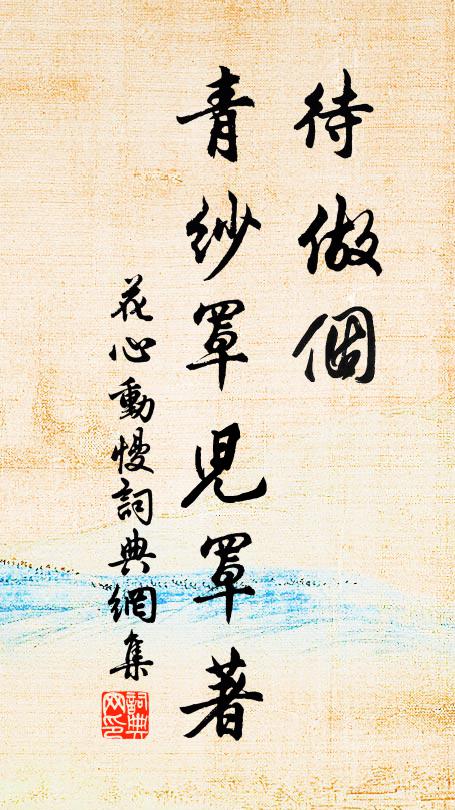 待做個
青紗罩兒罩著
花心動慢詞典網集
詞典網印